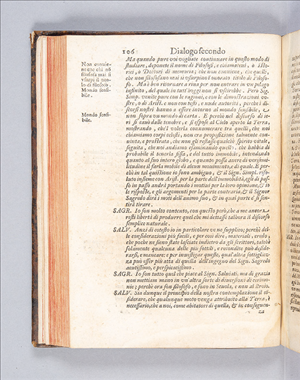 106 Dialogo secondo
Ma quando pure voi vogliate continuare in questo modo di
studiare, deponete il nome di Filosofi, e chiamateui, o Isto-
rici, o Dottori di memoria; che non conuiene, che quelli,
che non filosofano mai si vsurpino l'honorato titolo di Filo-
sofo. Ma è ben ritornare a riua per non entrare in vn pelago
infinito, del quale in tutt'oggi non si vscirebbe. Però Sig.
Simp. venite pure con le ragioni, e con le dimostrazioni vo-
stre, o di Arist. e non con testi, e nude autorità, perche i di-
scorsi nostri hanno a essere intorno al mondo sensibile, e
non sopra vn mondo di carta. E perche nel discorso di ie-
ri si cauò dalle tenebre, e si espose al Cielo aperto la Terra,
mostrando, che'l volerla connumerare tra quelli, che noi
chiamiamo corpi celesti, non era proposizione talmente con-
uinta, e prostrata, che non gli restasse qualche spirito vitale,
segùita, che noi andiamo esaminando quello, che habbia di
probabile il tenerla fissa, e del tutto immobile, intendendo
quanto al suo intero globo, e quanto possa hauere di verisi-
militudine il farla mobile di alcun mouimento, e di quale. E per-
che in tal quistione io sono ambiguo, & il Sig. Simpl. riso-
luto insieme con Arist. per la parte dell'immobilità, egli di pas-
so in passo andrà portando i motiui per la loro opinione, & io
le risposte, e gli argomenti per la parte contraria, & il Signor
Sagredo dirà i moti dell'animo suo, & in qual parte e' si sen-
tirà tirare.
SAGR. Io son molto contento, con questo però, che a me ancora
resti libertà di produrre quel che mi dettasse talhora il discorso
semplice naturale.
SALV. Anzi di cotesto io in particolare ve ne supplico; perche del-
le considerazioni più facili, e per così dire, materiali, credo,
che poche ne siano state lasciate indietro da gli scrittori, talche
solamente qualcuna delle più sottili, e recondite può deside-
rarsi, e mancare: e per inuestigar queste, qual'altra sottigliez-
za può esser più atta di quella dell'ingegno del Sig. Sagredo
acutissimo, e perspicacissimo?
SAGR. Io son tutto quel che piace al Sign. Saluiati, ma di grazia
non mettiam mano in vn'altra sorte di digressioni di cerimo-
nie; perche ora son filosofo, e sono in Scuola, e non al Broio.
SALV. Sia dunque il principio della nostra contemplazione il con-
siderare, che qualunque moto venga attribuito alla Terra, è
necessario, che a noi, come abitatori di quella, & in conseguen-
za
Mondo sensi-
bile.
Mondo sensi-
bile.